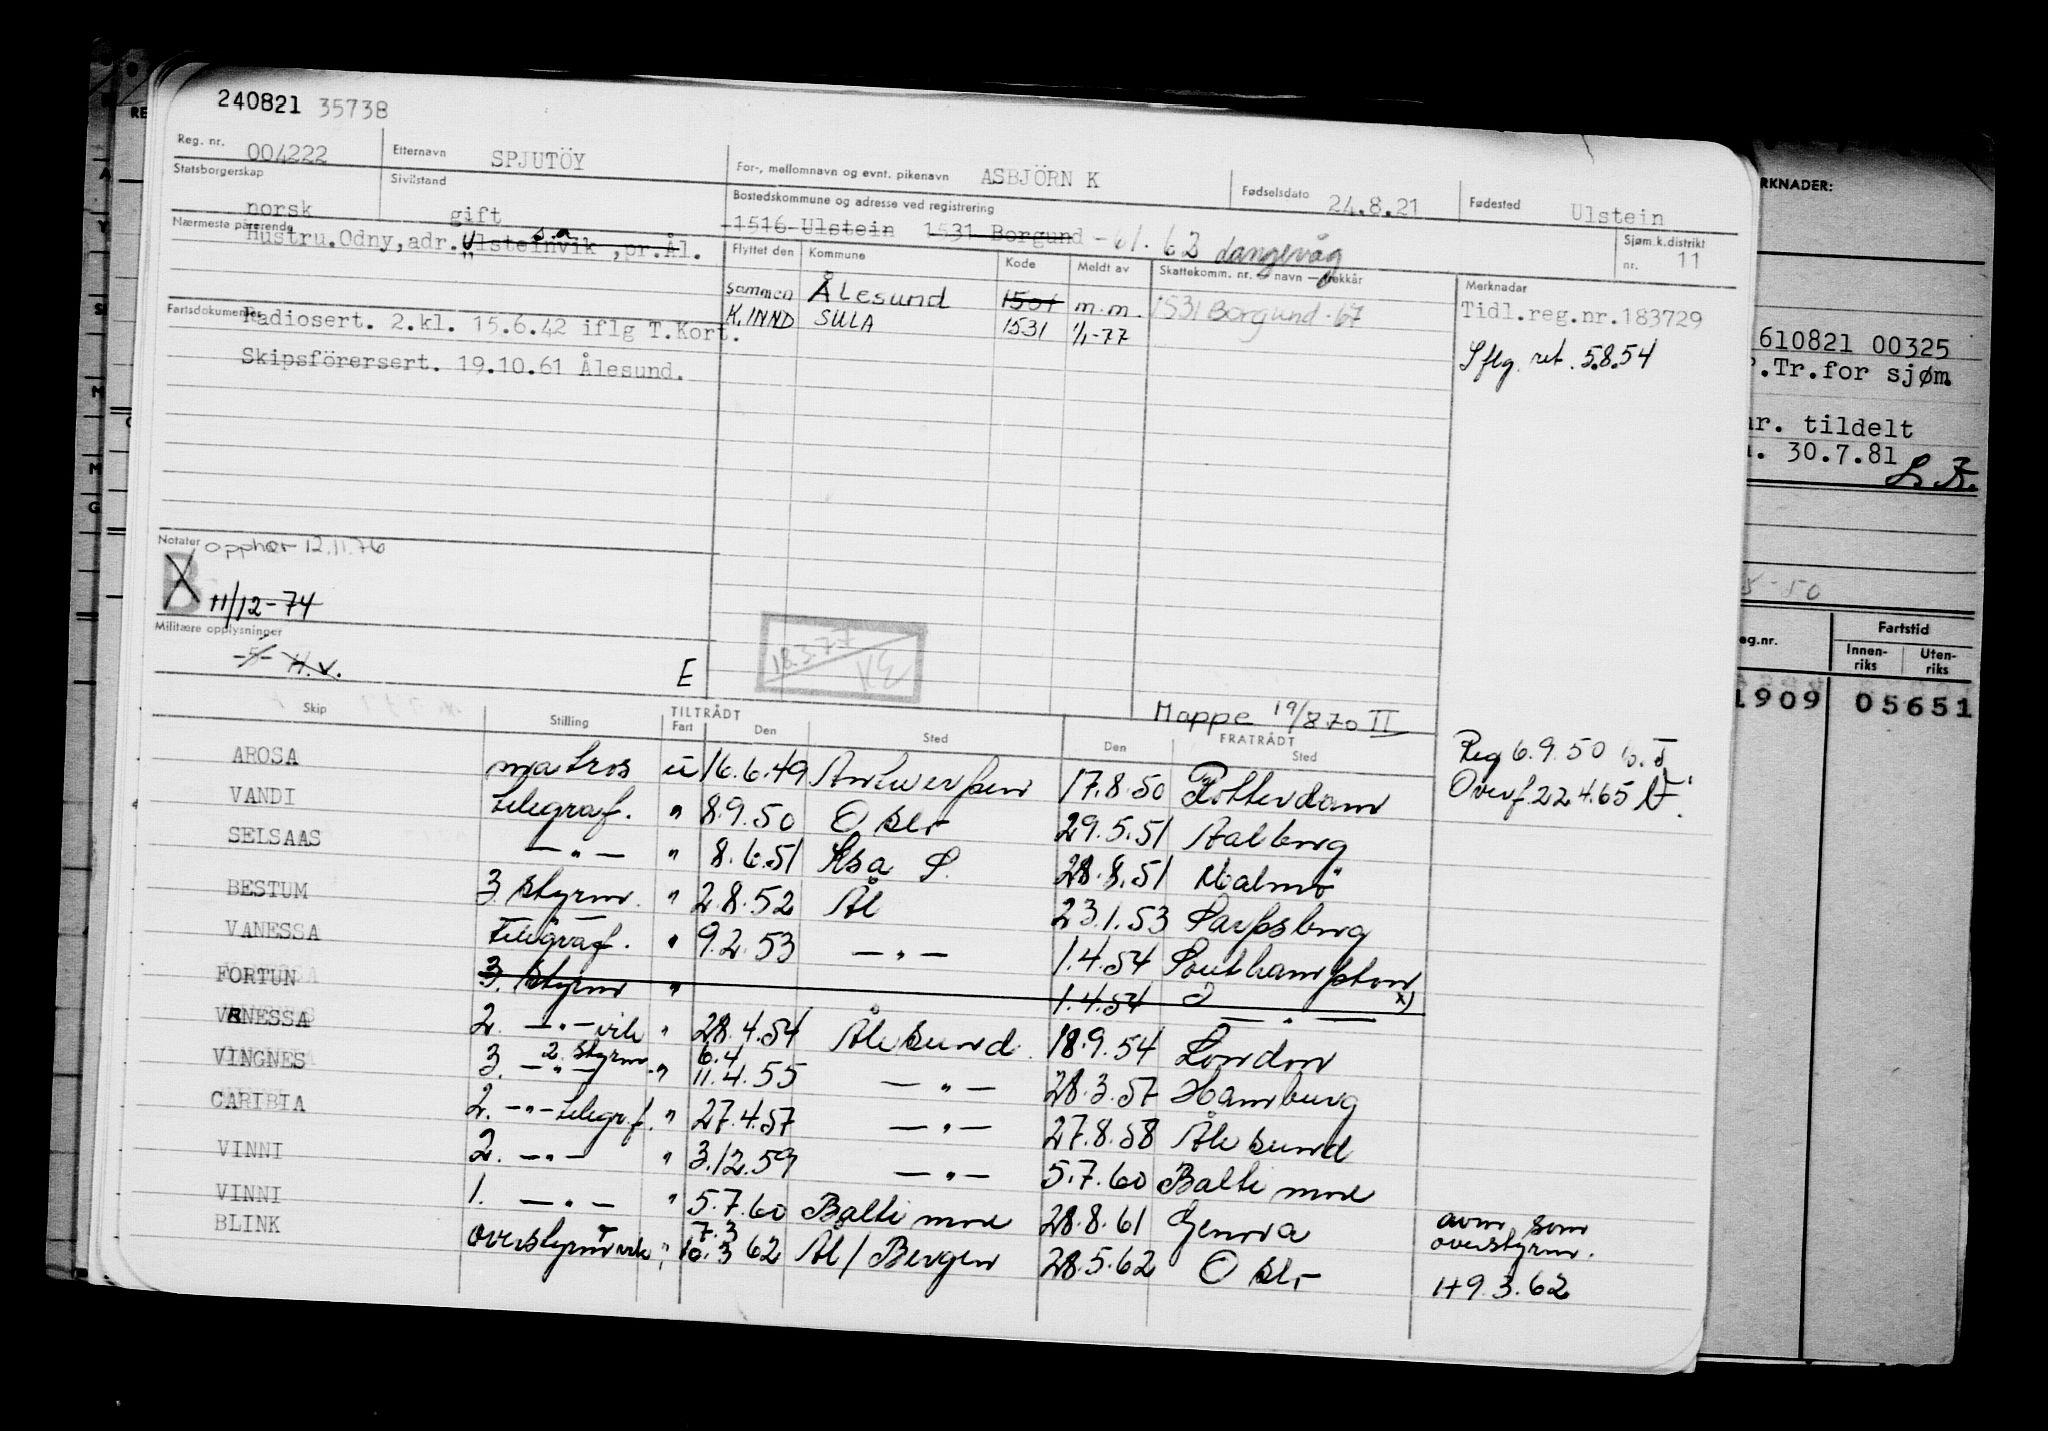 240821 35738
Reg. nr. 004222 Etternavn SPJUTÖY For-, mellomnavn og evnt. pikenavn ASBJÖRN K Fødselsdato 24.8.21 Fødested Ulstein
Statsborgerskap norsk Sivilstand gift Bostedskommune og adresse ved registrering 1516 Ulstein 1531 Borgund - 61. 62 Langevåg Sjøm.k.distrikt nr. 11
Nærmeste pårørende Hustru.Odny,adr. Ulsteinvik s.a ,pr.Ål.
Flyttet den Kommune Kode Meldt av Skattekomm. nr. navn — trekkår Merknader
sammen Ålesund 1501 m.m. 1531 Borgund - 67 Tidl.reg.nr.183729
K.INND SULA 1531 1/1-77
Iflg. ret. 5.8.54
Fartsdokumenter Radiosert. 2.kl. 15.6.42 iflg T.Kort.
Skipsförersert. 19.10.61 Ålesund.
Notater opphør 12.11.76
B 11/12-74
Militære opplysninger
H.V.
E
18.3.77 KE
Mappe 19/870 II
TILTRÅDT FRATRÅDT
Skip Stilling Fart Den Sted Den Sted
Reg 6.9.50
Overf. 22.4.65
AROSA matros u 16.6.49 Antwerpen 17.8.50 Rotterdam
VANDI telegraf. " 8.9.50 Oslo 29.5.51 Aalborg
SELSAAS — " — " 8.6.51 Ksa S. 28.8.51 Malmö
BESTUM 3 styrm. " 2.8.52 Ål 23.1.53 Sarpsborg
VANESSA telegraf. " 9.2.53 — " — 1.4.54 Southampton
FORTUN 3. styrm " 1.4.54 — " — x)
VANESSA 2. — " — vik " 28.4.54 Ålesund 18.9.54 London
VINGNES 3. — " — 2. styrm. " 6.4 11.4.55 — " — 28.3.57 Hamburg
CARIBIA 2. — " — telegr.f. " 27.4.57 — " — 27.8.58 Ålesund
VINNI 2. — " — " 3.12.59 — " — 5.7.60 Baltimore
VINNI 1. — " — " 5.7.60 Baltimore 28.8.61 Genova
BLINK overstyrm vik " 7.3 10.3 62 Ål / Bergen 28.5.62 Oslo
avm. som
overstyrm.
1+9.3.62
RKNADER:
610821 00325
P.Tr.for sjøm
nr. tildelt
30.7.81
Fartstid
eg.nr. Innen-riks Uten-riks
1909 05651